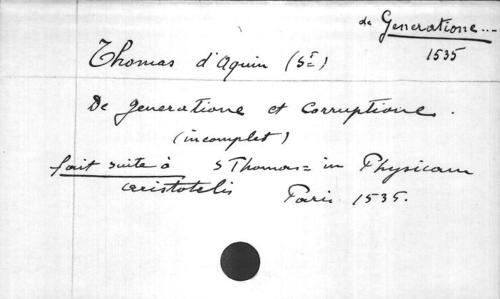 de Generatione...
1535
Thomas d'Aquin (St)
De generatione et corruptione.
(incomplet)
fait suite à S Thomas = in Physicam
aristotelis
Paris 1535.